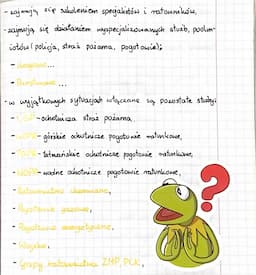 - zajmują się szkoleniem specjalistów i ratowników,
- zajmują się działaniem wyspecjalizowanych służb, podmiotów (policja, straż pożarna, pogotowie);
- ...
- ...
- w wyjątkowych sytuacjach włączane są pozostałe służby:
- ochotnicza straż pożarna,
- górskie ochotnicze pogotowie ratunkowe,
- tatrzańskie ochotnicze pogotowie ratunkowe,
- wodne ochotnicze pogotowie ratunkowe,
- Pogotowie gazowe,
- Pogotowie energetyczne,
- Wojsko,
- Grupy ratownictwa ZHP, PCK,
?